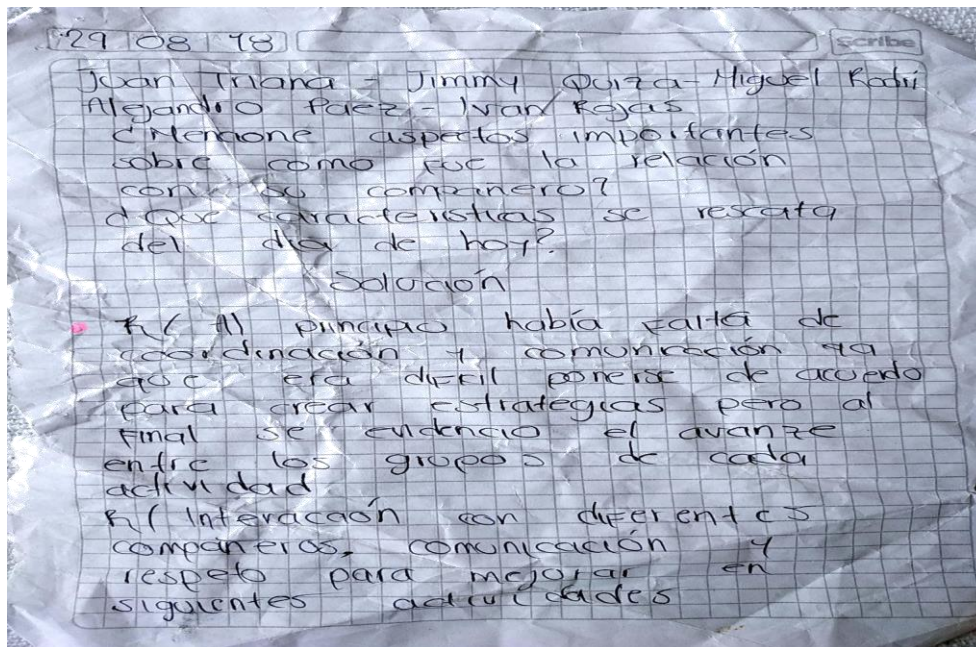 29 08 18 scribe
Joan Triana - Jimmy Quiza - Miguel Rodri
Alejandro Paez - Ivan Rojas
¿Mencione aspectos importantes
sobre como fue la relación
con su compañero?
¿Que caracteristicas se rescata
del dia de hoy?
Solución
R( Al principio había falta de
coordinación y comunicación ya
que era dificil ponerse de acuerdo
para crear estrategias pero al
final se evidencio el avanze
entre los grupos de cada
actividad
R( Interacción con diferentes
compañeros, comunicación y
respeto para mejorar en
siguientes actividades